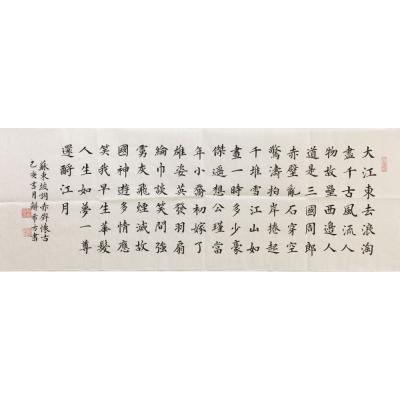 大江東去浪淘
盡千古風流人
物故壘西邊人
道是三國周郎
赤壁亂石穿空
驚濤拍岸捲起
千堆雪江山如
畫一時多少豪
傑遙想公瑾當
年小喬初嫁了
雄姿英發羽扇
綸巾談笑間強
虜灰飛煙滅故
國神遊多情應
笑我早生華髮
人生如夢一尊
還酹江月
蘇東坡詞赤壁懷古
己亥月希方書